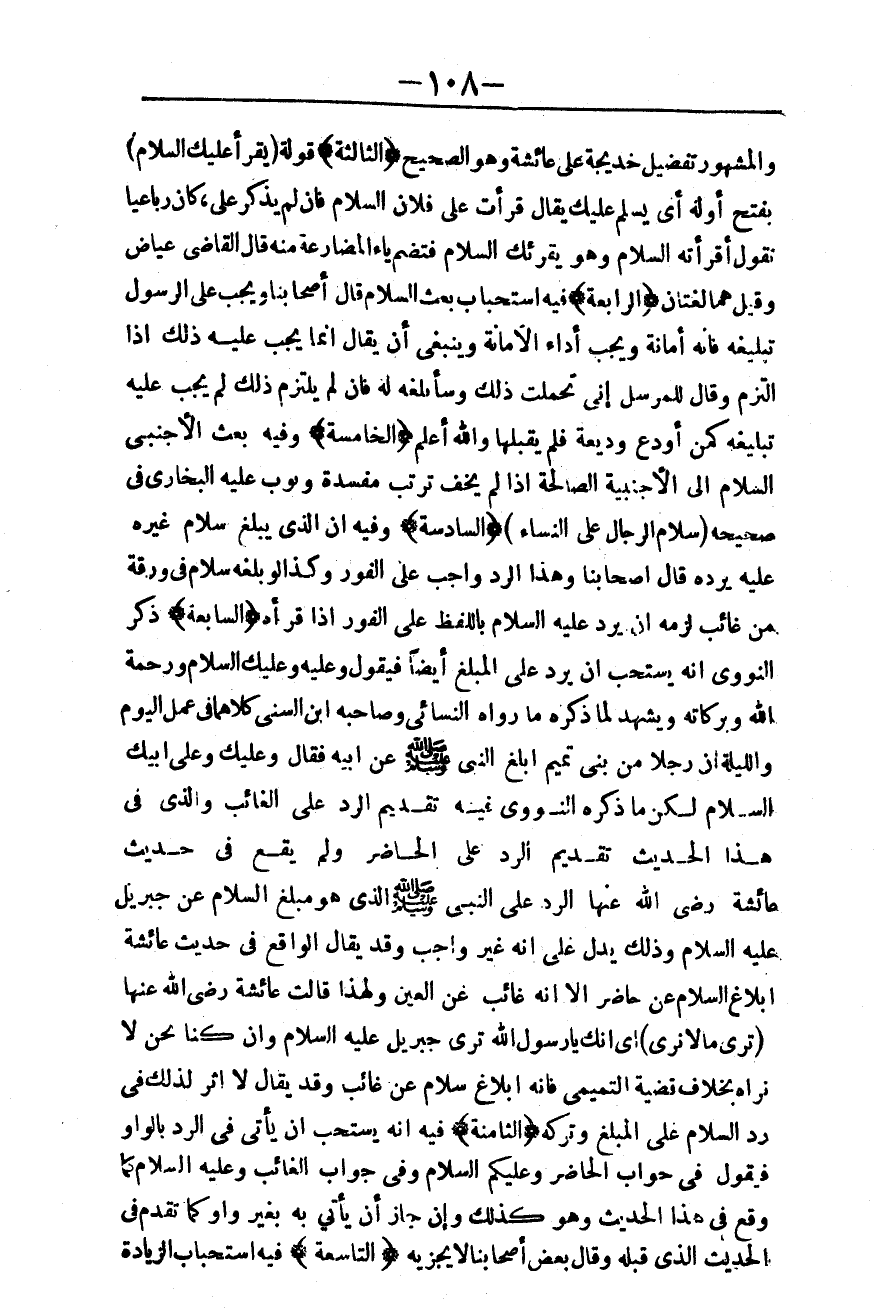 —١٠٨—
والمشهور تفضيل خديجة على عائشة وهو الصحيح ﴿الثالثة﴾ قوله (يقرأ عليك السلام)
بفتح أوله أى يسلم عليك يقال قرأت على فلان السلام فان لم يذكر على، كان رباعيا
تقول أقرأته السلام وهو يقرئك السلام فتضم ياء المضارعة منه قال القاضى عياض
وقيل هما لغتان ﴿الرابعة﴾ فيه استحباب بعث السلام قال أصحابنا ويجب على الرسول
تبليغه فانه أمانة ويجب أداء الأمانة وينبغى أن يقال انما يجب عليه ذلك اذا
التزم وقال للمرسل إنى تحملت ذلك وسأبلغه له فان لم يلتزم ذلك لم يجب عليه
تبليغه كمن أودع وديعة فلم يقبلها والله أعلم ﴿الخامسة﴾ وفيه بعث الأجنبى
السلام الى الأجنبية الصالحة اذا لم يخف ترتب مفسدة وبوب عليه البخارى فى
صحيحه (سلام الرجال على النساء) ﴿السادسة﴾ وفيه ان الذى يبلغ سلام غيره
عليه يرده قال اصحابنا وهذا الرد واجب على الفور وكذا لو بلغه سلام فى ورقة
من غائب لزمه ان يرد عليه السلام باللفظ على الفور اذا قرأه ﴿السابعة﴾ ذكر
النووى انه يستحب ان يرد على المبلغ أيضاً فيقول وعليه وعليك السلام ورحمة
الله وبركاته ويشهد لما ذكره ما رواه النسائى وصاحبه ابن السنى كلاهما فى عمل اليوم
والليلة ان رجلا من بنى تميم ابلغ النبى ﷺ عن ابيه فقال وعليك وعلى ابيك
السلام لكن ما ذكره النووى فيه تقديم الرد على الغائب والذى فى
هذا الحديث تقديم الرد على الحاضر ولم يقع فى حديث
عائشة رضى الله عنها الرد على النبى ﷺ الذى هو مبلغ السلام عن جبريل
عليه السلام وذلك يدل على انه غير واجب وقد يقال الواقع فى حديث عائشة
ابلاغ السلام عن حاضر الا انه غائب عن العين ولهذا قالت عائشة رضى الله عنها
(ترى مالا نرى) اى انك يارسول الله ترى جبريل عليه السلام وان كنا نحن لا
نراه بخلاف قضية التميمى فانه ابلاغ سلام عن غائب وقد يقال لا اثر لذلك فى
رد السلام على المبلغ وتركه ﴿الثامنة﴾ فيه انه يستحب ان يأتى فى الرد بالواو
فيقول فى جواب الحاضر وعليكم السلام وفى جواب الغائب وعليه السلام كما
وقع فى هذا الحديث وهو كذلك وإن جاز أن يأتي به بغير واو كما تقدم فى
الحديث الذى قبله وقال بعض أصحابنا لا يجزيه ﴿التاسعة﴾ فيه استحباب الزيادة